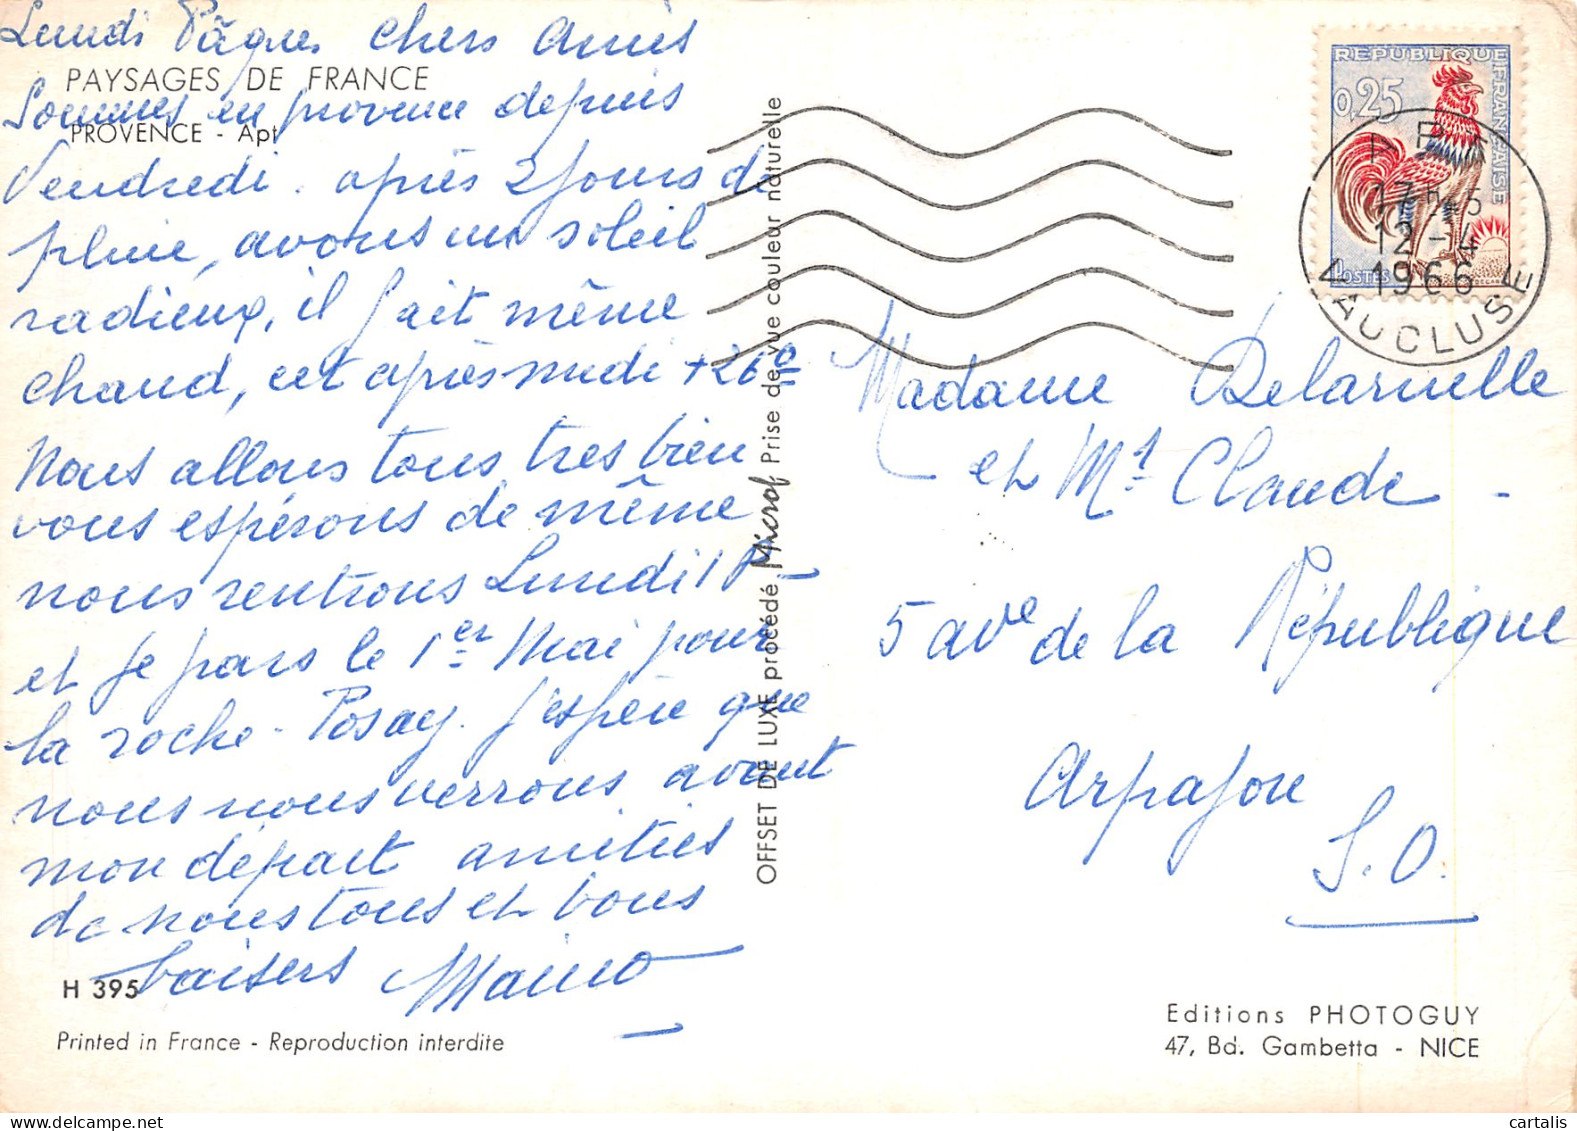 Lundi Pâques Chers Amis
PAYSAGES DE FRANCE
Sommes en provence depuis
PROVENCE - Apt
Vendredi. après 2 jours de
pluie, avons un soleil
radieux, il fait même
chaud, cet après midi +26°
Nous allons tous tres bien
vous espérons de même
nous rentrons Lundi 18
et je pars le 1er Mai pour
la roche-Posay. j'espère que
nous nous verrons avant
mon départ amitiés
de nous tous et bons
baisers
H 395
Printed in France - Reproduction interdite
OFFSET DE LUXE procédé Microf Prise de vue couleur naturelle
REPUBLIQUE FRANÇAISE
0,25
POSTES
APT
17H45
12-4
1966
VAUCLUSE
Madame Delaruelle
et Mr Claude
5 ave de la République
Arpajon
S.O.
Editions PHOTOGUY
47, Bd. Gambetta - NICE
cartalis